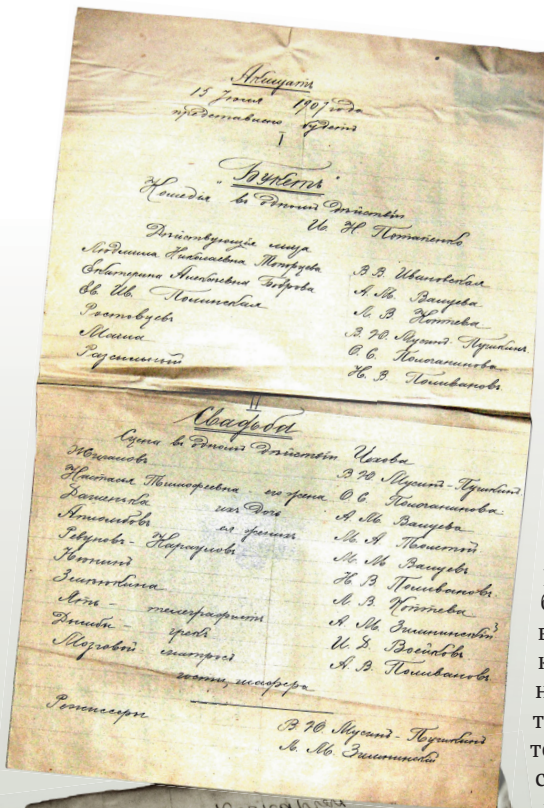 Акшуатъ
15 Июля 1907 года
представлено будетъ
I
"Букетъ"
Комедія въ одномъ дѣйствіи
И. Н. Потапенко
Дѣйствующія лица
Людмила Николаевна В. В. Ивановская
Екатерина Алексѣевна Боброва А. М. Валуева
Ев. Ив. Полинская Л. В.
Ростовцевъ В. Ю. Мусинъ-Пушкинъ
Маша О. С.
Разсыльный Н. В. Поливановъ
II
Свадьба
Сцена въ одномъ дѣйствіи Чехова
Жигаловъ В Ю Мусинъ-Пушкинъ
Настасья Тимофеевна его жена О С
Дашенька ихъ дочь А. М. Валуева
Апломбовъ ея женихъ М. А. Толстой
Ревуновъ-Карауловъ М. М. Валуевъ
Нюнинъ Н В Поливановъ
Змеюкина Л. В.
Ять - телеграфистъ А. М.
Дымба - грекъ И. Д. Воейковъ
Мозговой матросъ А. В. Поливановъ
гости, шафера
Режиссеры В. Ю. Мусинъ-Пушкинъ
А. М.